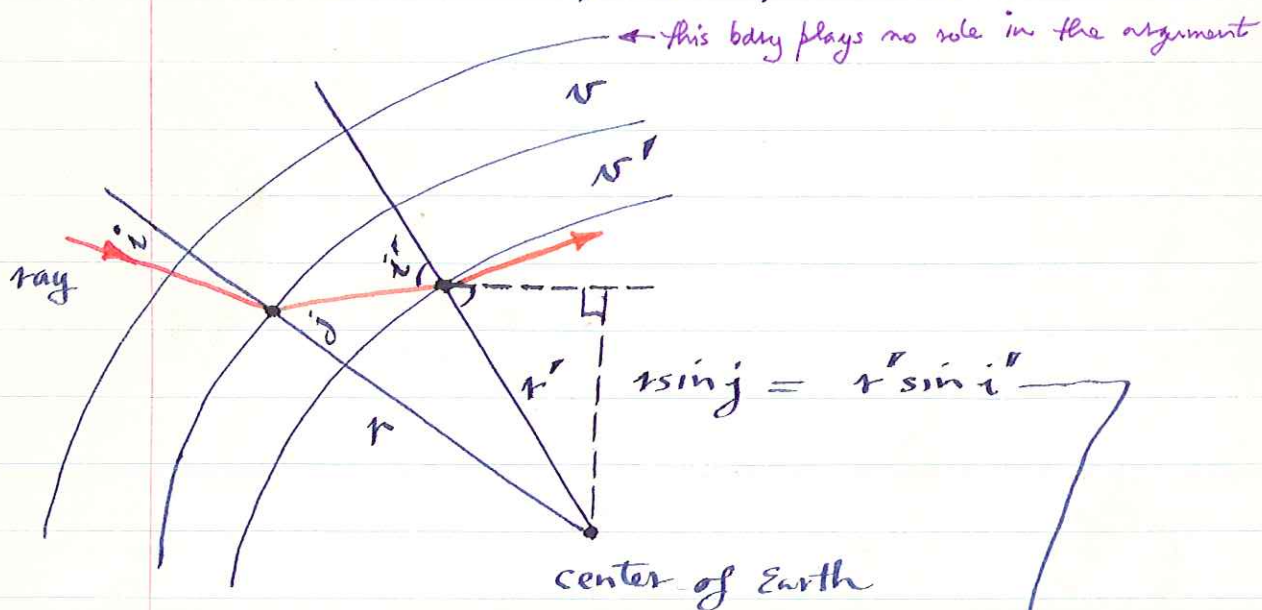 ← this bdry plays no role in the argument
v
v'
i
ray
i'
j
r'
r sin j = r" sin i"
r
center of Earth